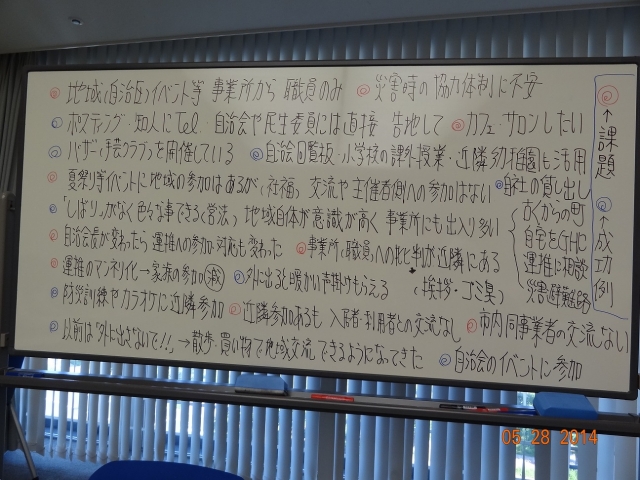 地域(自治区)イベント等 事業所から 職員のみ 災害時の協力体制に不安
ポスティング・知人にTel・自治会や民生委員には直接 告地して カフェ・サロンしたい
バザー(手芸クラブ)を開催している 自治会回覧板・小学校の課外授業・近隣幼稚園も活用
夏祭り等イベントに地域の参加はあるが(社福) 交流や主催者側への参加はない 自社の貸し出し
「しばり」がなく色々な事できる(営法) 地域自体が意識が高く 事業所にも出入り多い
自治会長が変わったら 運推への参加・対応も変わった 事業所(職員)への批判が近隣にある
運推のマンネリ化→家族の参加減 外に出ると暖かい声掛けもらえる (挨拶・ゴミ臭)
防災訓練やカラオケに近隣参加 近隣参加あるも 入居者・利用者との交流なし 市内同事業者の交流ない
以前は「外に出さないで!!」→散歩・買い物で地域交流できるようになってきた 自治会のイベントに参加
古くからの町
自宅をGHに
運推に相談
災害避難路
↑課題
↑成功例
05 28 2014